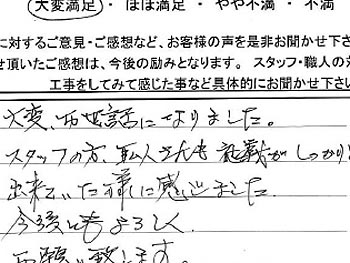 大変満足 ・ ほぼ満足 ・ やや不満 ・ 不満
に対するご意見・ご感想など、お客様の声を是非お聞かせ下さ
せ頂いたご感想は、今後の励みとなります。 スタッフ・職人の対
工事をしてみて感じた事など具体的にお聞かせ下さい
大変、お世話になりました。
スタッフの方、職人さんも 教育がしっかり
出来ていた事に感じました
今後ともよろしく
お願い致します。